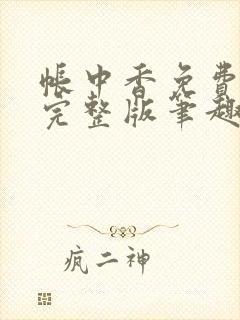 帐中香免费
完整版笔趣
疯二神